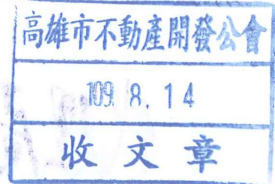 高雄市不動產開發公會
109. 8. 14
收文章